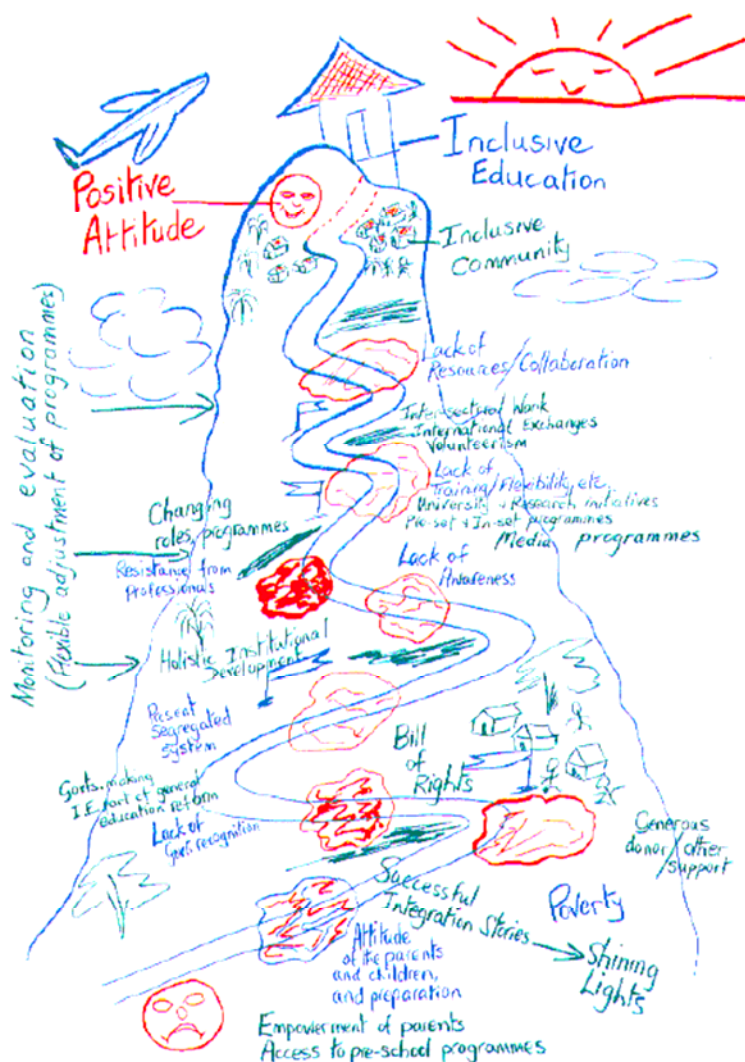 Inclusive
Education
Positive
Attitude
Inclusive
Community
Monitoring and evaluation
(Flexible adjustment of programmes)
Lack of
Resources/Collaboration
Inter-sectoral Work
International Exchanges
Volunteerism
Lack of
Training/Flexibility, etc.
University + Research initiatives
Pre-set + In-set programmes
Media programmes
Changing
roles, programmes
Resistance from
professionals
Lack of
Awareness
Holistic Institutional
Development
Present
segregated
system
Bill
of
Rights
Govts. making
I.E. part of general
education reform
Lack of
Govt. recognition
Generous
donor/other
support
Successful
Integration Stories
Poverty
Shining
Lights
Attitude
of the parents
and children,
and preparation
Empowerment of parents
Access to pre-school programmes